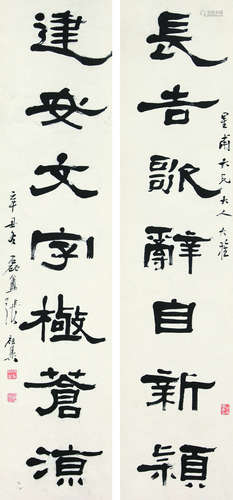 長吉歌辭自新穎
星甫大兄大人大雅
建安文字極蒼涼
辛丑冬